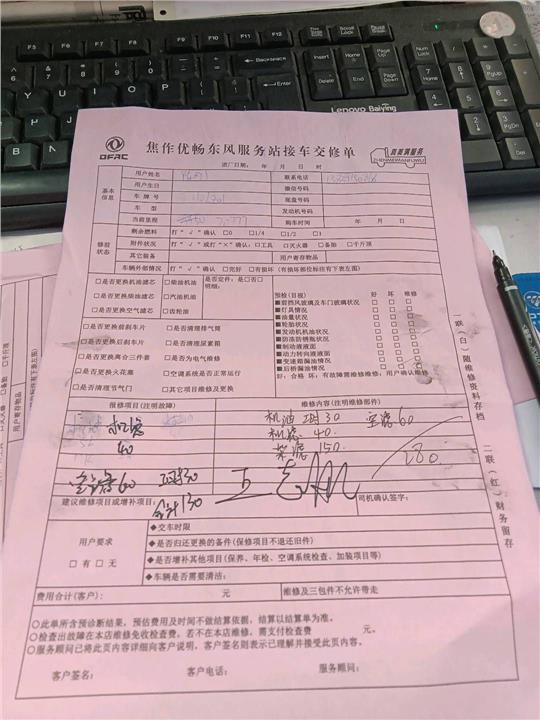 DFAC
焦作优畅东风服务站接车交修单
真美满服务
ZHENMEIMANFUWU
进厂日期: 年 月 日 时
基本信息
用户姓名
联系电话
用户生日
微信号码
车牌号
底盘号码
车型
发动机号码
当前里程
购车时间 年 月 日
修前状态
剩余燃料 打“√”确认:□0 □1/4 □1/2 □1
附件状况 打“√”或打“×”确认:□工具 □灭火器 □备胎 □千斤顶
其它装备
用户寄存物品
车辆外部情况 打“√”确认:□完好 □有损坏(有损坏部位标注有下表左图)
□是否更换机油滤芯 □柴油机油
□是否更换柴油滤芯 □汽油机油
□是否更换空气滤芯 □齿轮油
是否定件:是□否□
明细:
□是否更换前刹车片 □是否清理排气筒
□是否更换后刹车片 □是否清理尿素箱
□是否更换离合三件套 □是否为电气维修
□是否更换火花塞 □空调系统是否正常运行
□是否清理节气门 □其它项目维修及更换
预检(目视) 好 坏 维修
■前挡风玻璃及车门玻璃状况 □ □ □
■灯具情况 □ □ □
■油量状况 □ □ □
■轮胎状况 □ □ □
■发动机机油状况 □ □ □
■防冻防锈瓶状况 □ □ □
■制动液液面 □ □ □
■动力转向液液面 □ □ □
■变速箱漏油情况 □ □ □
■后桥漏油情况 □ □ □
好:合格 坏:有故障需维修维修:用户确认维修
报修项目(注明故障)
维修内容(注明维修部件)
机滤
40
机油 工时30 空滤60
机滤 40
柴滤 150
280
空滤60 工时30
合计130
建议维修项目或增补项目:
司机确认签字:
用户要求
□有 □无
◆交车时限
◆是否归还更换的备件(保修项目不退还旧件)
◆是否增补其他项目(保养、年检、空调系统检查、加装项目等)
◆车辆是否需要清洁:
费用合计(客户): 元
维修及三包件不允许带走
○此单所含预诊断结果,预估费用及时间不做结算依据,结算以结算单为准。
○检查出故障在本店维修免收检查费。若不在本店维修,需支付检查费 元。
○服务顾问已将此页内容详细向客户说明,客户签名则表示已理解并接受此页内容。
客户签名: 客户电话: 服务顾问:
一联(白)随维修资料存档
二联(红)财务留存
Lenovo Baiying